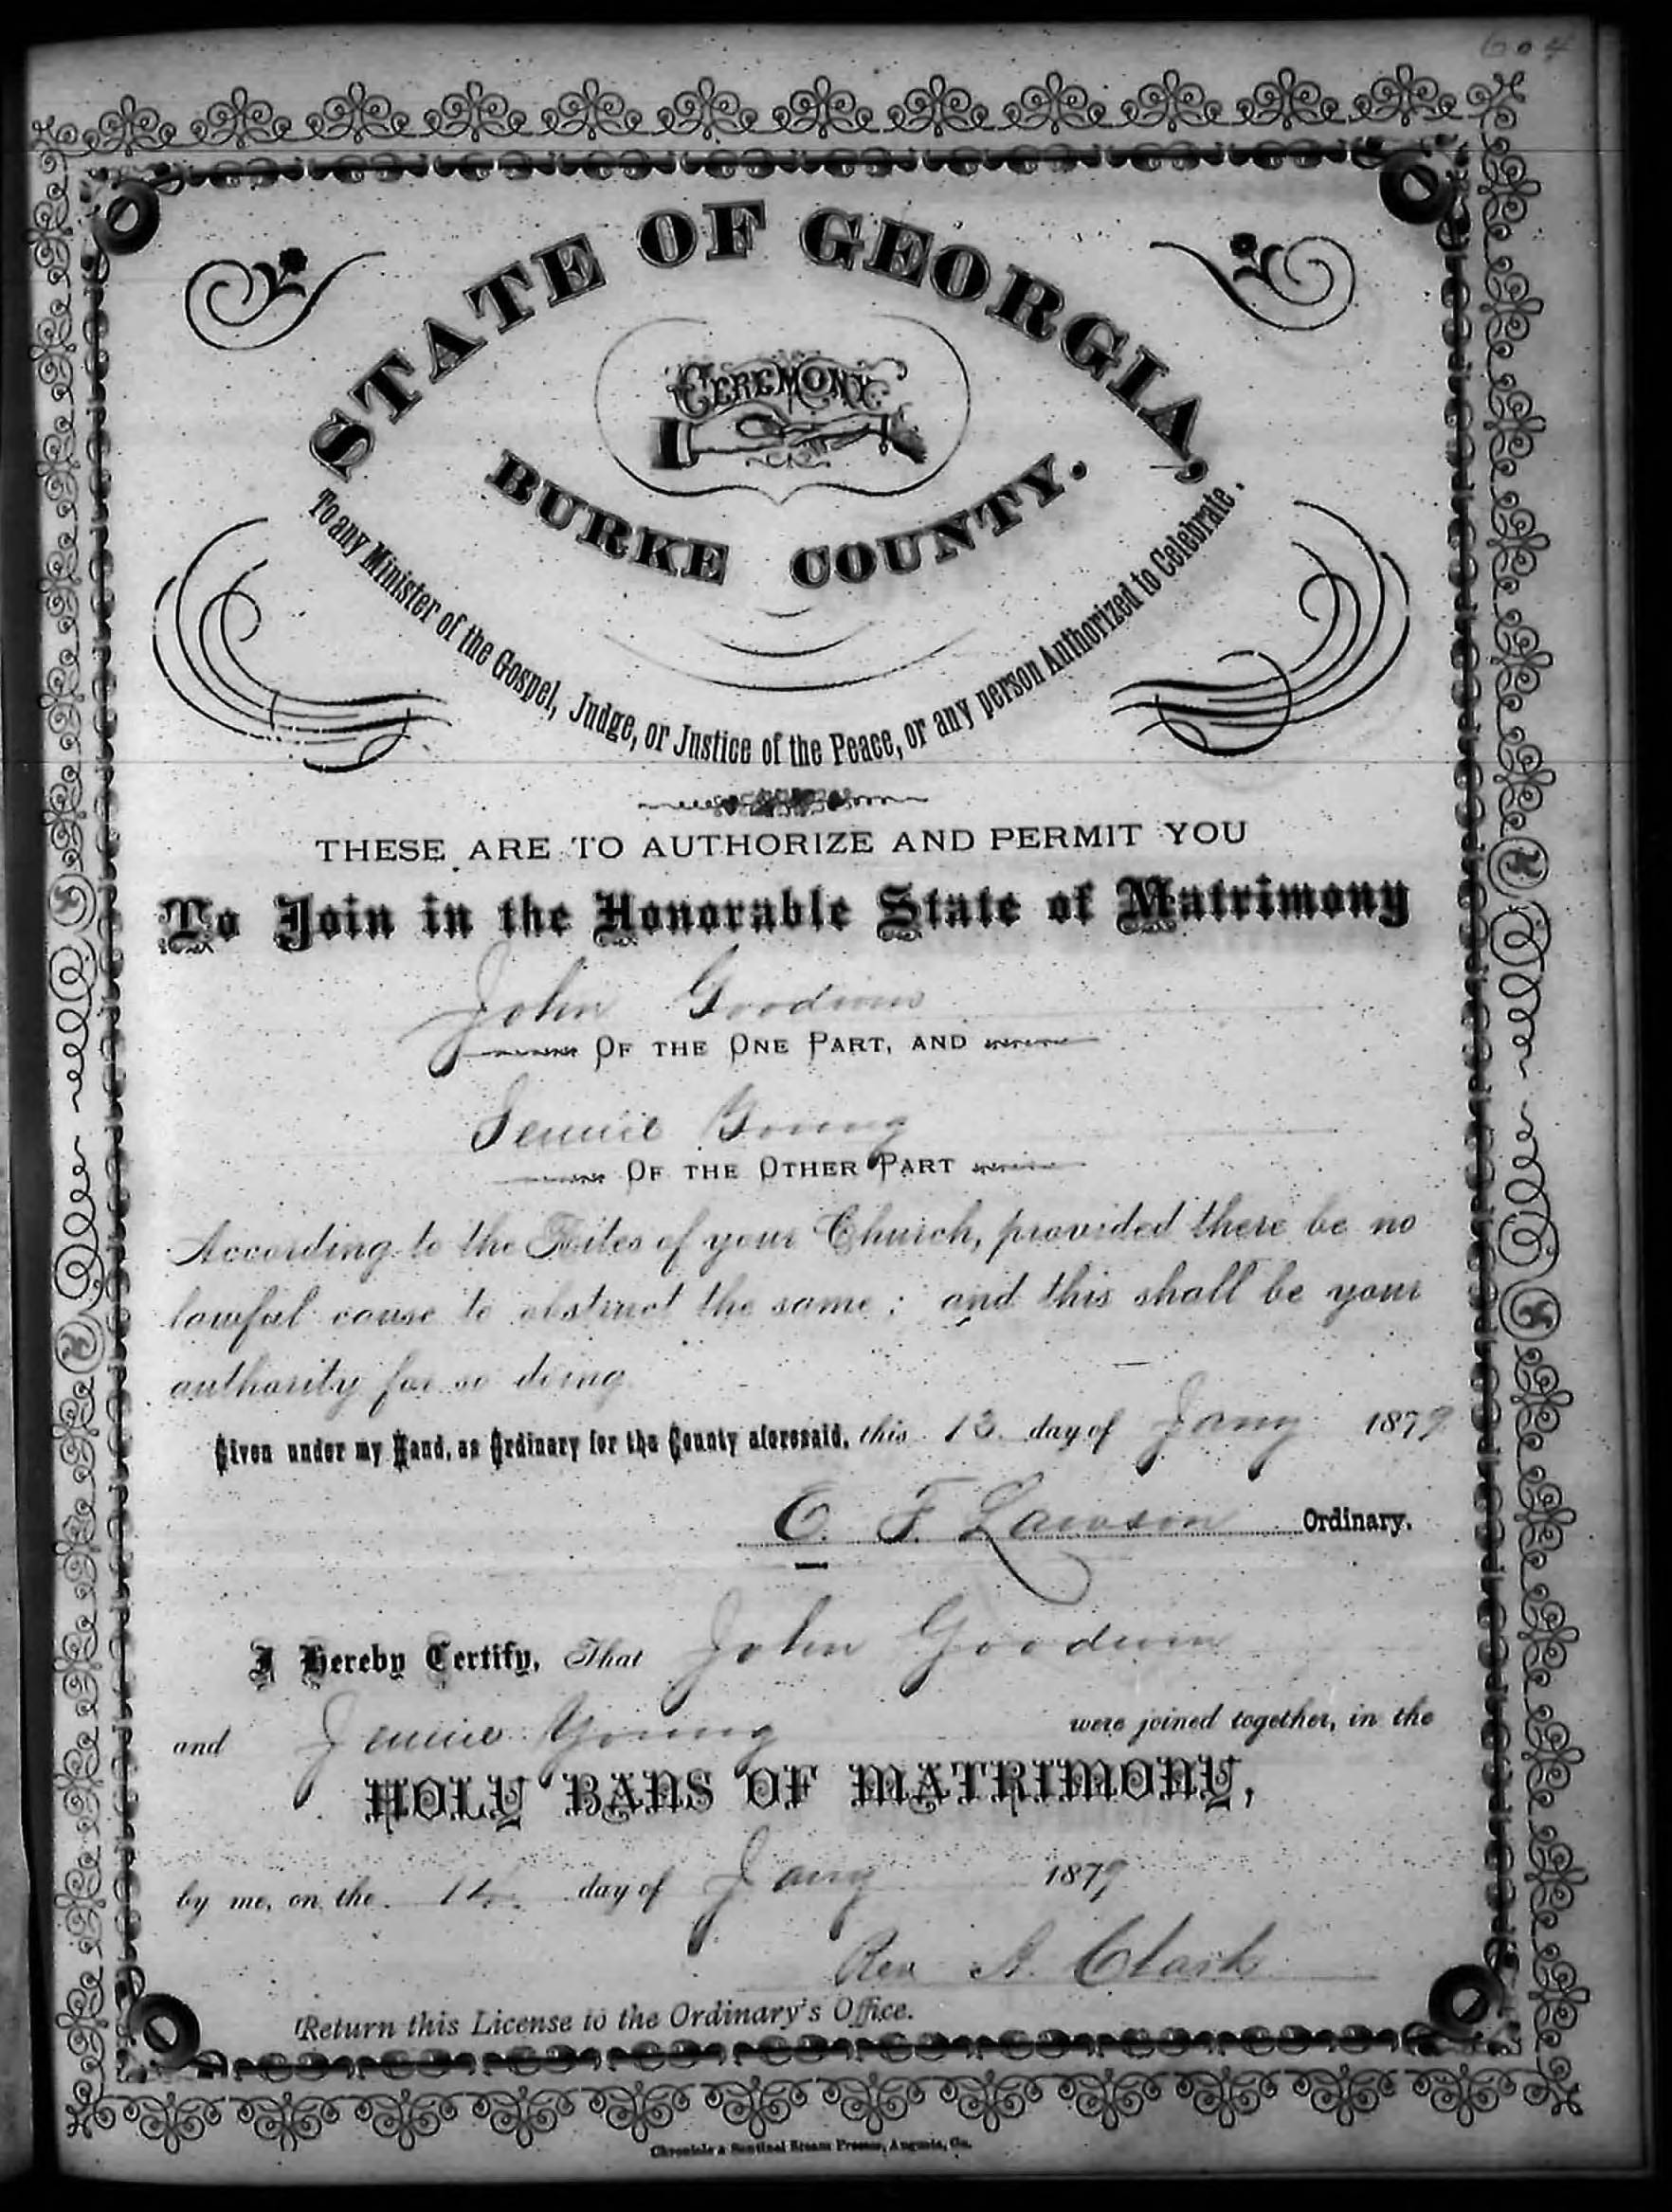 604
STATE OF GEORGIA,
CEREMONY
BURKE COUNTY.
To any Minister of the Gospel, Judge, or Justice of the Peace, or any person Authorized to Celebrate.
THESE ARE TO AUTHORIZE AND PERMIT YOU
To Join in the Honorable State of Matrimony
John Goodwin
OF THE ONE PART, AND
Jennie Young
OF THE OTHER PART
According to the Rites of your Church, provided there be no
lawful cause to obstruct the same; and this shall be your
authority for so doing
Given under my Hand, as Ordinary for the County aforesaid, this 13 day of Jany 1879
E. F. Lawson Ordinary.
I Hereby Certify, That John Goodwin
and Jennie Young were joined together, in the
HOLY BANS OF MATRIMONY,
by me, on the day of Jany 1879
Rev A. Clark
Return this License to the Ordinary's Office.
Chronicle & Sentinel Steam Presses, Augusta, Ga.